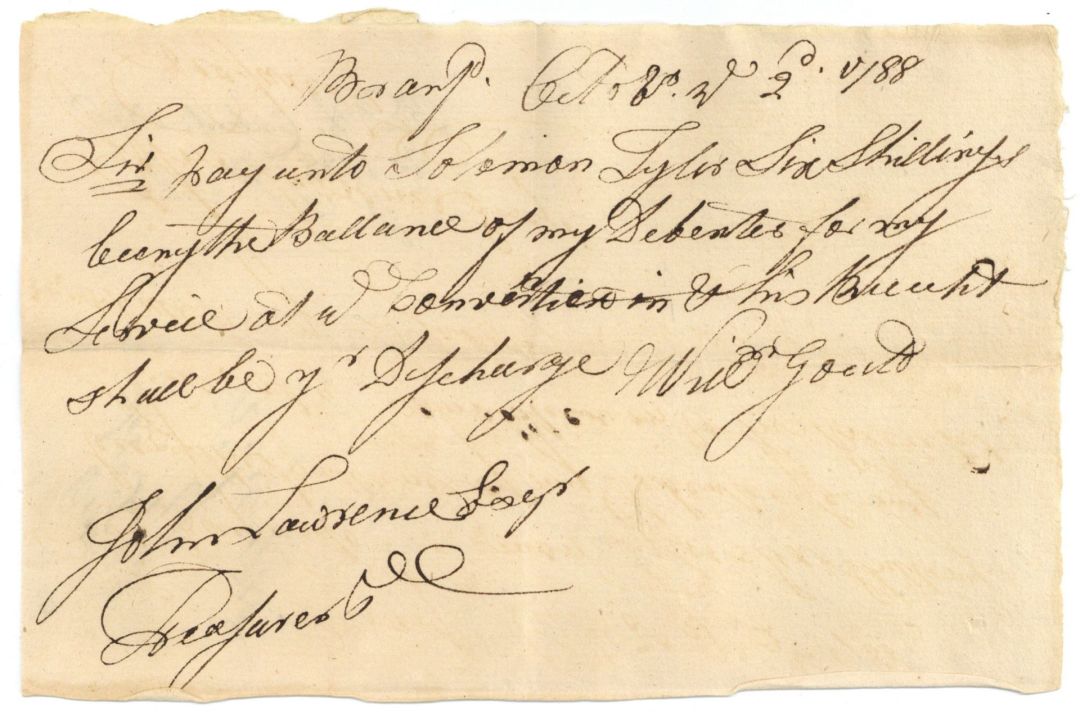 Branfd. Octobr. ye 2d. 1788
Sir pay unto Solomon Tyler Six Shillings
being the Ballance of my Debenter for my
Service at ye Convention in & this Receipt
shall be yr Discharge Willm Gould
John Lawrence Esqr
Treasurer